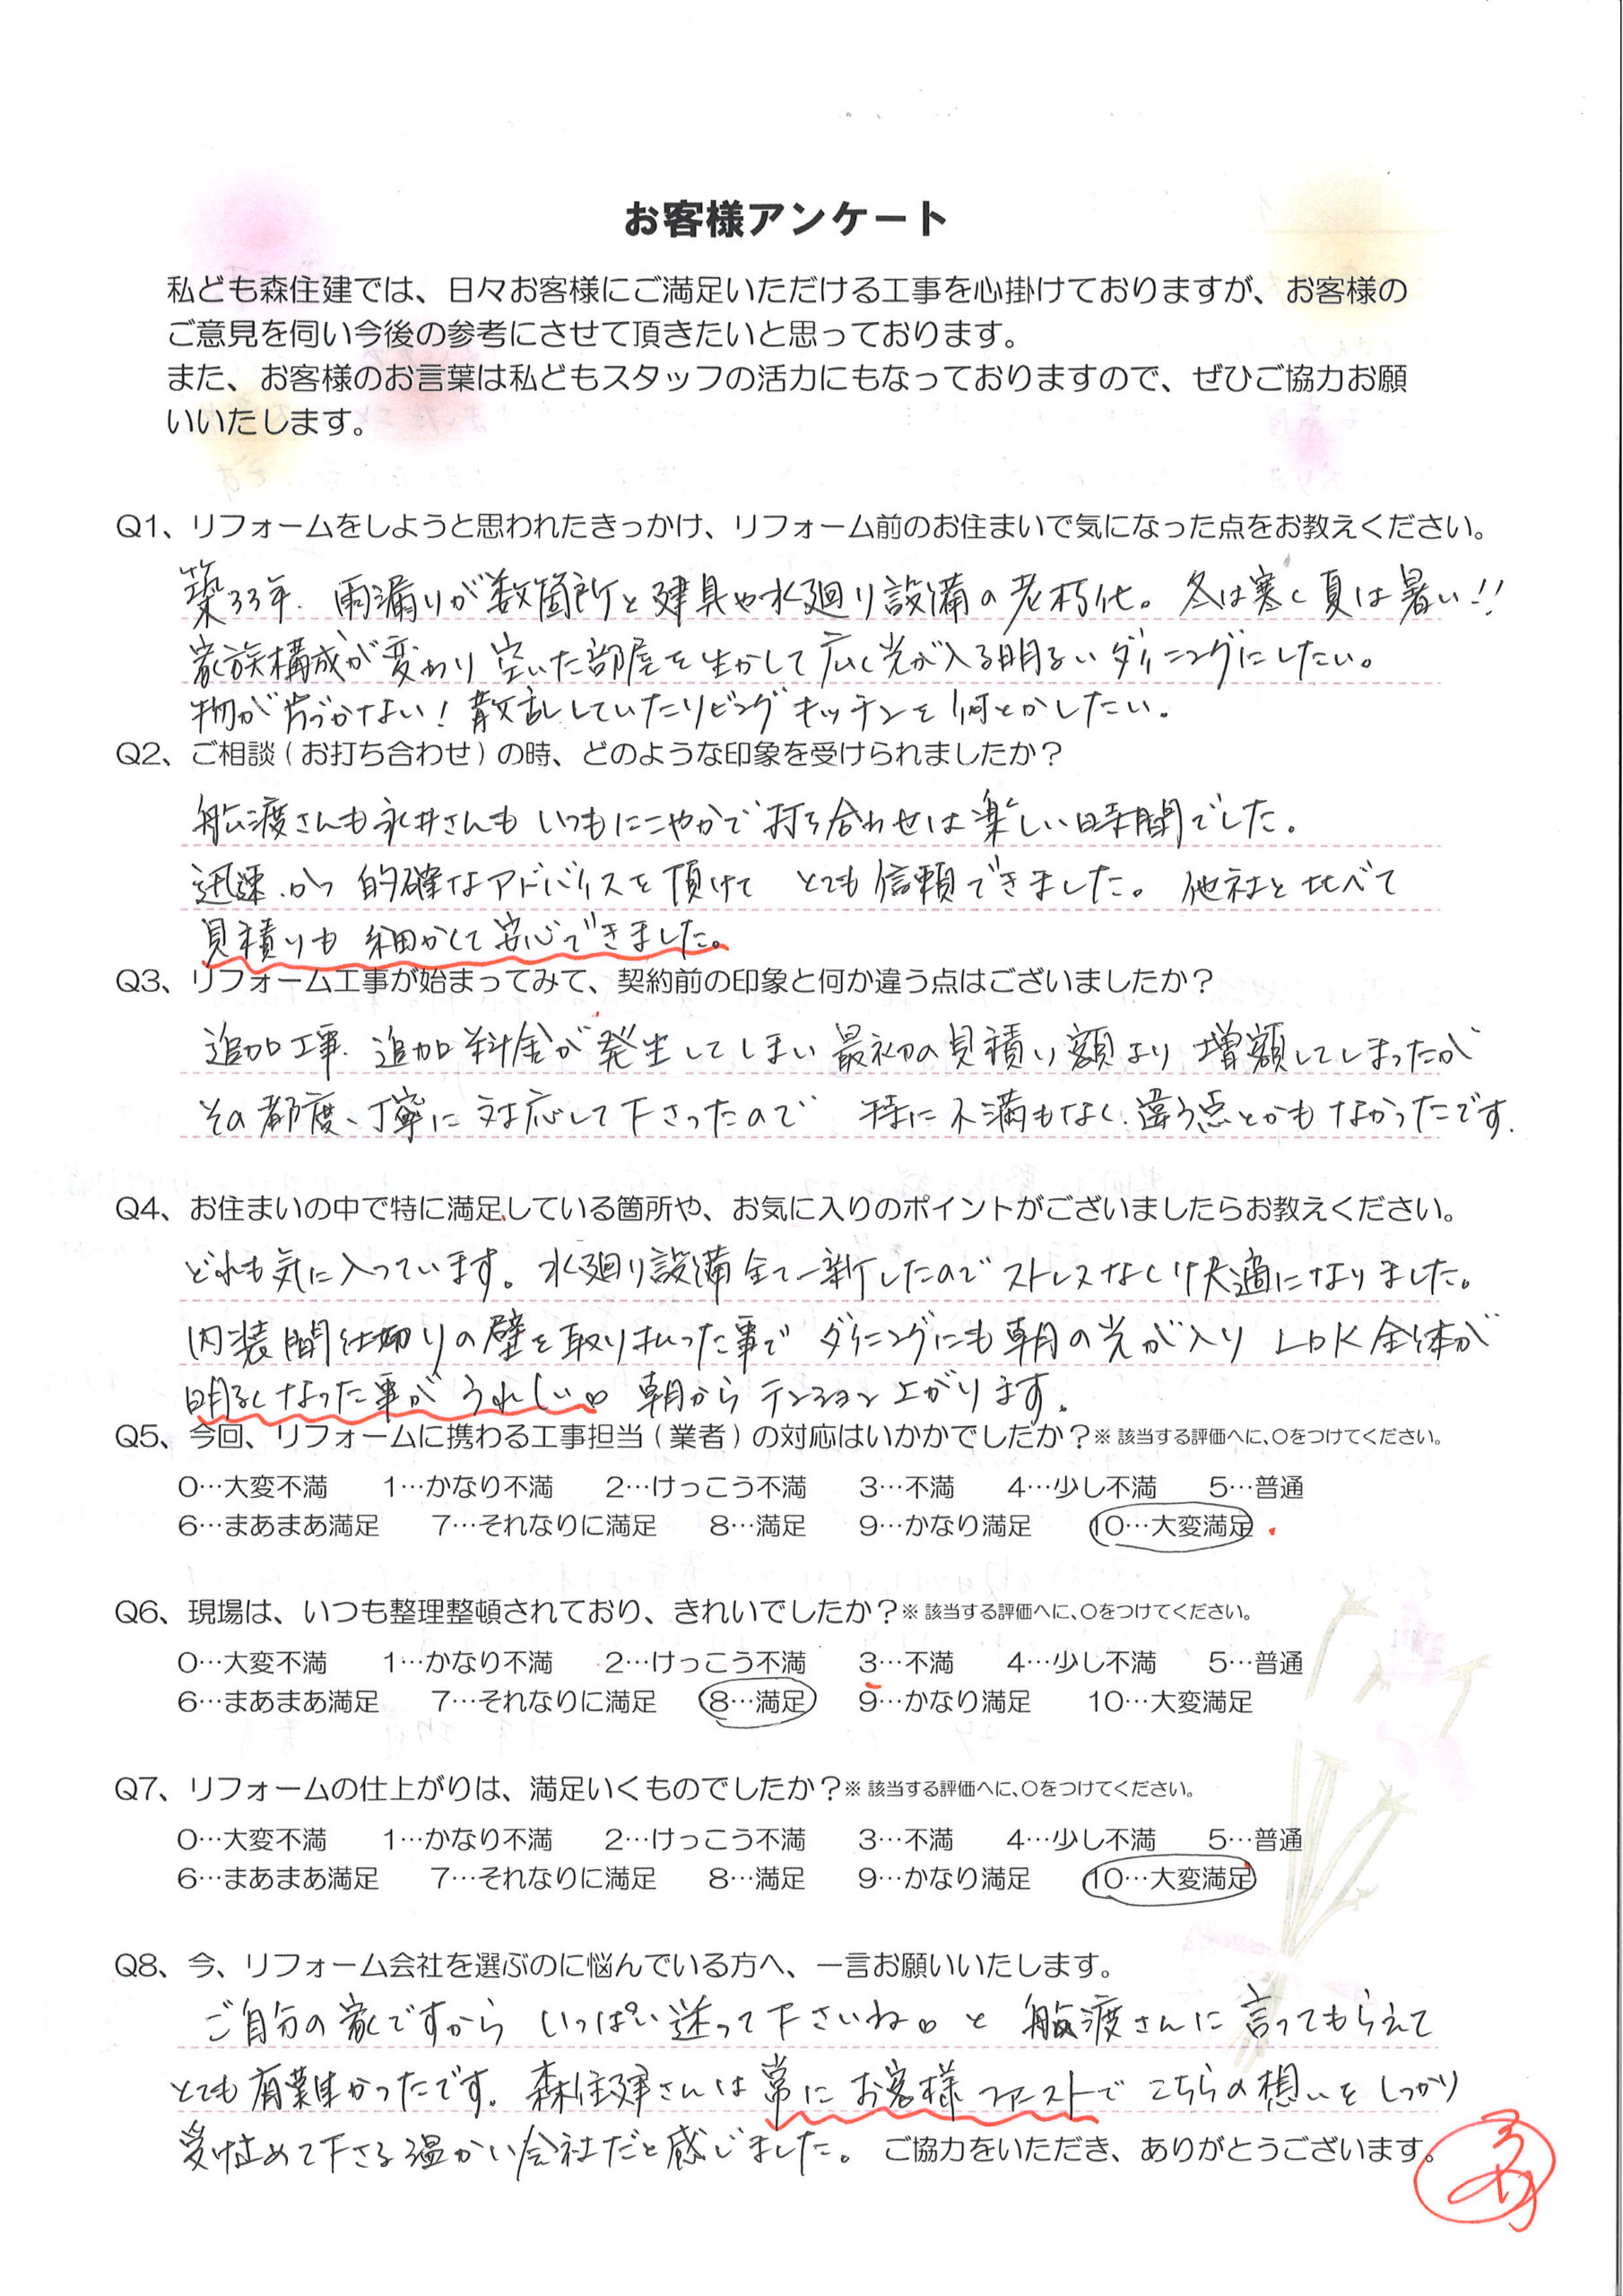 お客様アンケート
私ども森住建では、日々お客様にご満足いただける工事を心掛けておりますが、お客様の
ご意見を伺い今後の参考にさせて頂きたいと思っております。
また、お客様のお言葉は私どもスタッフの活力にもなっておりますので、ぜひご協力お願
いいたします。
Q1、リフォームをしようと思われたきっかけ、リフォーム前のお住まいで気になった点をお教えください。
築33年. 雨漏りが数箇所と建具や水廻り設備の老朽化。冬は寒く夏は暑い!!
家族構成が変わり空いた部屋を生かして広く光が入る明るいダイニングにしたい。
物が片づかない!散乱していたリビングキッチンを何とかしたい。
Q2、ご相談(お打ち合わせ)の時、どのような印象を受けられましたか?
船渡さんも永井さんもいつもにこやかで打ち合わせは楽しい時間でした。
迅速かつ的確なアドバイスを頂けてとても信頼できました。他社と比べて
見積りも細かくて安心できました。
Q3、リフォーム工事が始まってみて、契約前の印象と何か違う点はございましたか?
追加工事.追加料金が発生してしまい最初の見積り額より増額してしまったが
その都度、丁寧に対応して下さったので 特に不満もなく、違う点とかもなかったです.
Q4、お住まいの中で特に満足している箇所や、お気に入りのポイントがございましたらお教えください。
どれも気に入っています。水廻り設備全て一新したのでストレスなく快適になりました。
内装間仕切りの壁を取り払った事でダイニングにも朝の光が入りLDK全体が
明るくなった事がうれしい♡ 朝からテンション上がります.
Q5、今回、リフォームに携わる工事担当(業者)の対応はいかかでしたか?※該当する評価へに、○をつけてください。
0…大変不満 1…かなり不満 2…けっこう不満 3…不満 4…少し不満 5…普通
6…まあまあ満足 7…それなりに満足 8…満足 9…かなり満足 10…大変満足
Q6、現場は、いつも整理整頓されており、きれいでしたか?※該当する評価へに、○をつけてください。
0…大変不満 1…かなり不満 2…けっこう不満 3…不満 4…少し不満 5…普通
6…まあまあ満足 7…それなりに満足 8…満足 9…かなり満足 10…大変満足
Q7、リフォームの仕上がりは、満足いくものでしたか?※該当する評価へに、○をつけてください。
0…大変不満 1…かなり不満 2…けっこう不満 3…不満 4…少し不満 5…普通
6…まあまあ満足 7…それなりに満足 8…満足 9…かなり満足 10…大変満足
Q8、今、リフォーム会社を選ぶのに悩んでいる方へ、一言お願いいたします。
ご自分の家ですからいっぱい迷って下さいね♡と船渡さんに言ってもらえて
とても有難かったです。森住建さんは常にお客様ファーストでこちらの想いをしっかり
受け止めて下さる温かい会社だと感じました。 ご協力をいただき、ありがとうございます。